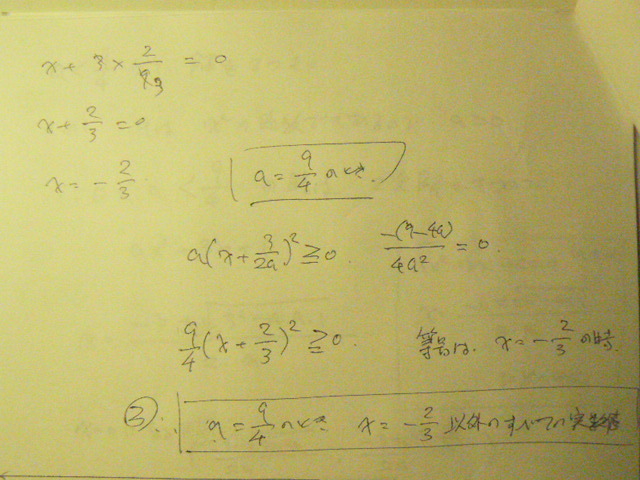 x + 3 × 2/9 3 = 0
x + 2/3 = 0
x = - 2/3
a = 9/4 のとき.
a(x + 3/2a)² ≧ 0. -(9-4a)/4a² = 0.
9/4(x + 2/3)² ≧ 0. 等号は. x = - 2/3 の時.
③ ∴ a = 9/4 のとき x = - 2/3 以外のすべての実数